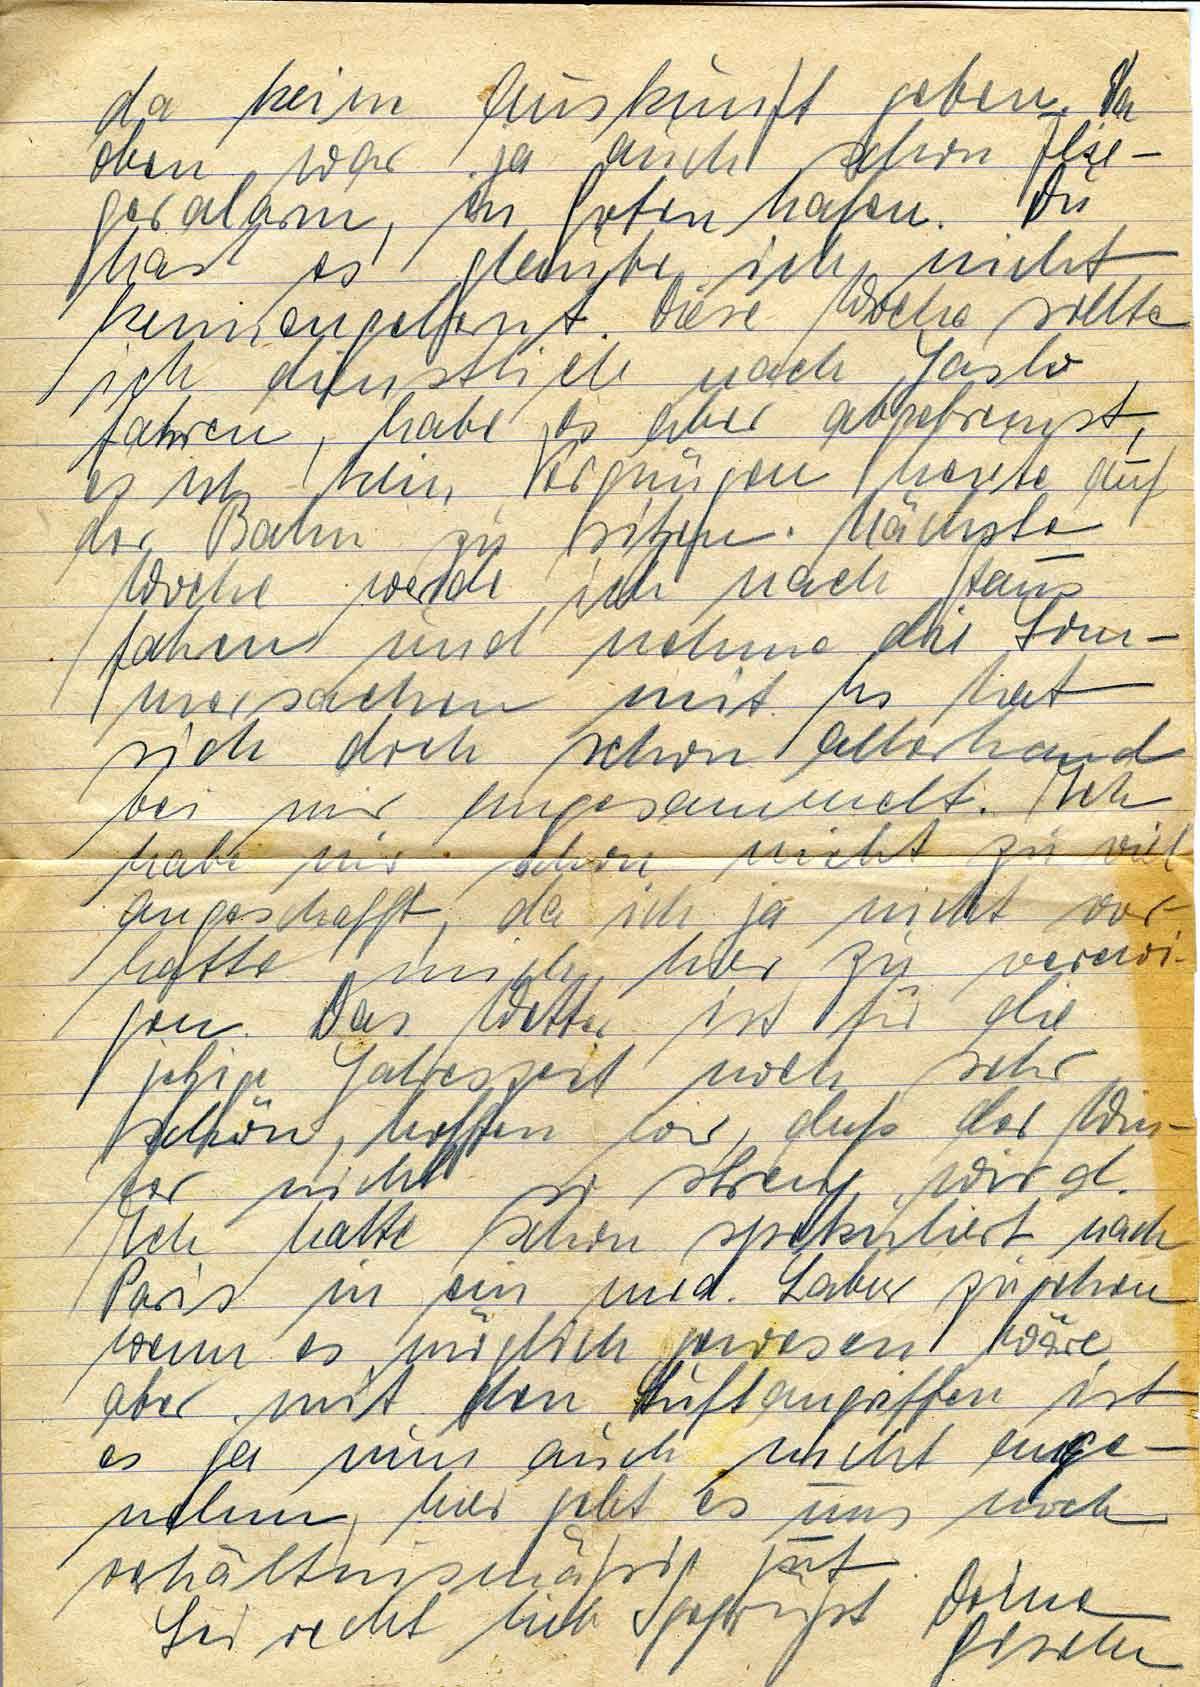 da kein Auskunft geben. Da
oben war ja auch schon Flie-
geralarm, in Gotenhafen. Du
has es glaube ich nicht
kennengelernt. Diese Woche sollte
ich dienstlich nach Jaslo
fahren, habe es aber abgehängt,
es ist kein Vergnügen heute auf
der Bahn zu sitzen. Nächste
Woche werde ich nach Haus
fahren und nehme die Som-
mersachen mit. Es hat
sich doch schon allerhand
bei mir angesammelt. Ich
habe mir schon nicht zu viel
angeschafft, da ich ja nicht vor-
hatte mich hier zu verewi-
gen. Das Wetter ist für die
jetzige Jahreszeit noch sehr
schön, hoffen wir, daß der Win-
ter nicht so streng wird.
Ich hatte schon spekuliert nach
Paris in ein med. Labor zu gehen
wenn es möglich gewesen wäre,
aber mit den Luftangriffen ist
es ja nun auch nicht ange-
nehm, hier geht es uns noch
verhältnismäßig gut.
Sei recht lieb gegrüßt Deine